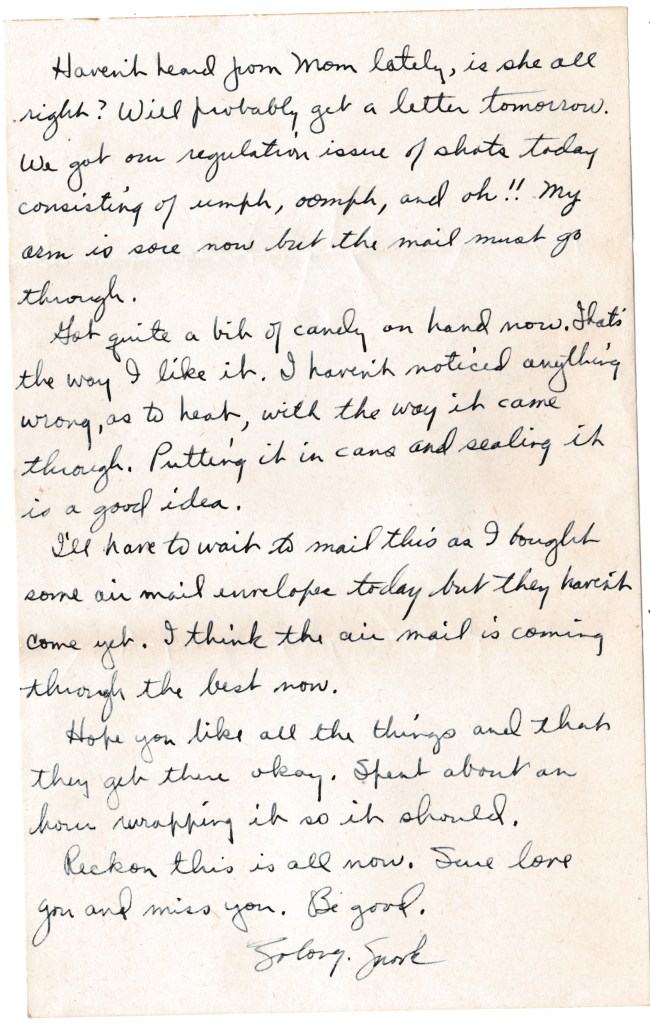 Haven't heard from Mom lately, is she all
right? Will probably get a letter tomorrow.
We got our regulation issue of shots today
consisting of umph, oomph, and oh!! My
arm is sore now but the mail must go
through.
Got quite a bit of candy on hand now. That's
the way I like it. I haven't noticed anything
wrong, as to heat, with the way it came
through. Putting it in cans and sealing it
is a good idea.
I'll have to wait to mail this as I bought
some air mail envelopes today but they haven't
come yet. I think the air mail is coming
through the best now.
Hope you like all the things and that
they get there okay. Spent about an
hour wrapping it so it should.
Reckon this is all now. Sure love
you and miss you. Be good.
So long.